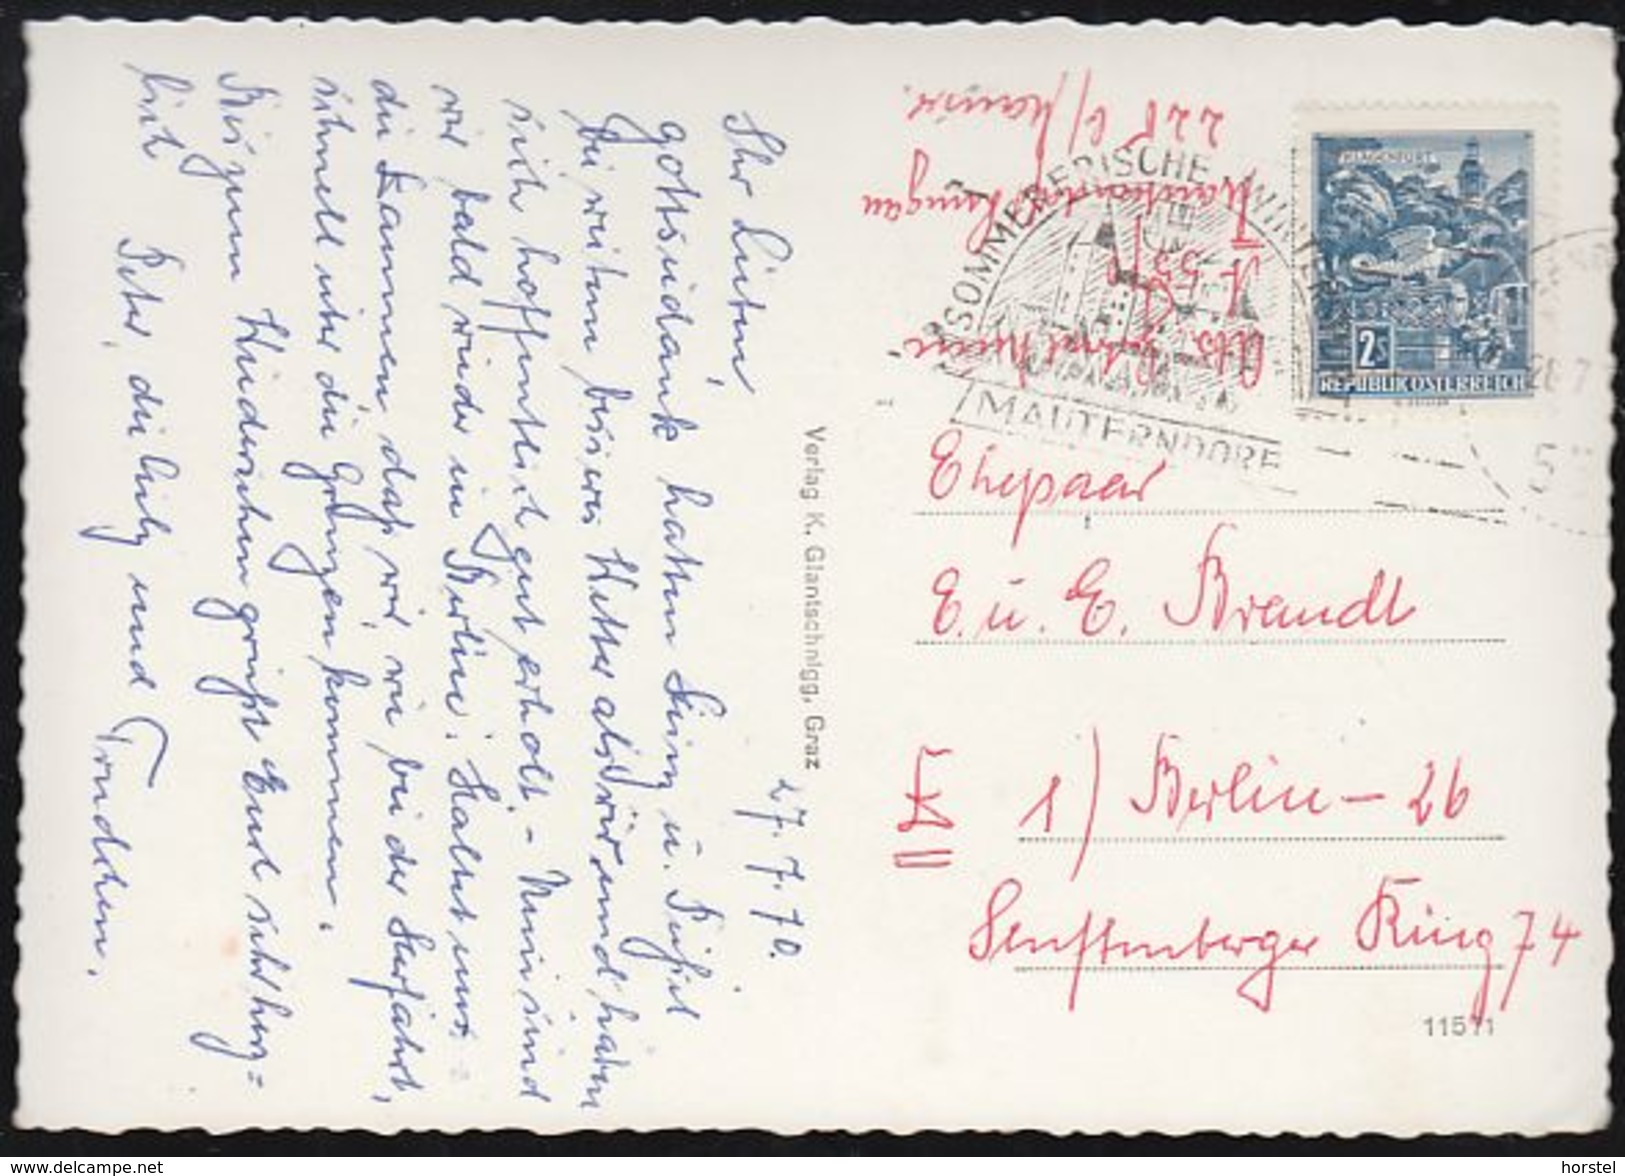 27. 7. 70.
Ihr Lieben,
gottseidank hatten Heinz u. Sigrid
weitem besseres Wetter als wir und haben
sich hoffentlich gut erholt. – Nun sind
wir bald wieder in Berlin. Haltet uns
die Daumen, daß wir, wie bei der Herfahrt,
schnell über die Grenzen kommen.
Bis zum Wiedersehen grüßt Euch sehr herz=
lich Peter, die Linly und Trudchen.
Verlag K. Glantschnigg, Graz
SOMMERFRISCHE
MAUTERNDORF
KLAGENFURT
2 S
REPUBLIK ÖSTERREICH
Ehepaar
E. u. E. Brandt
1) Berlin – 26
Senftenberger Ring 74
11571
Abs.
horstel
www.delcampe.net